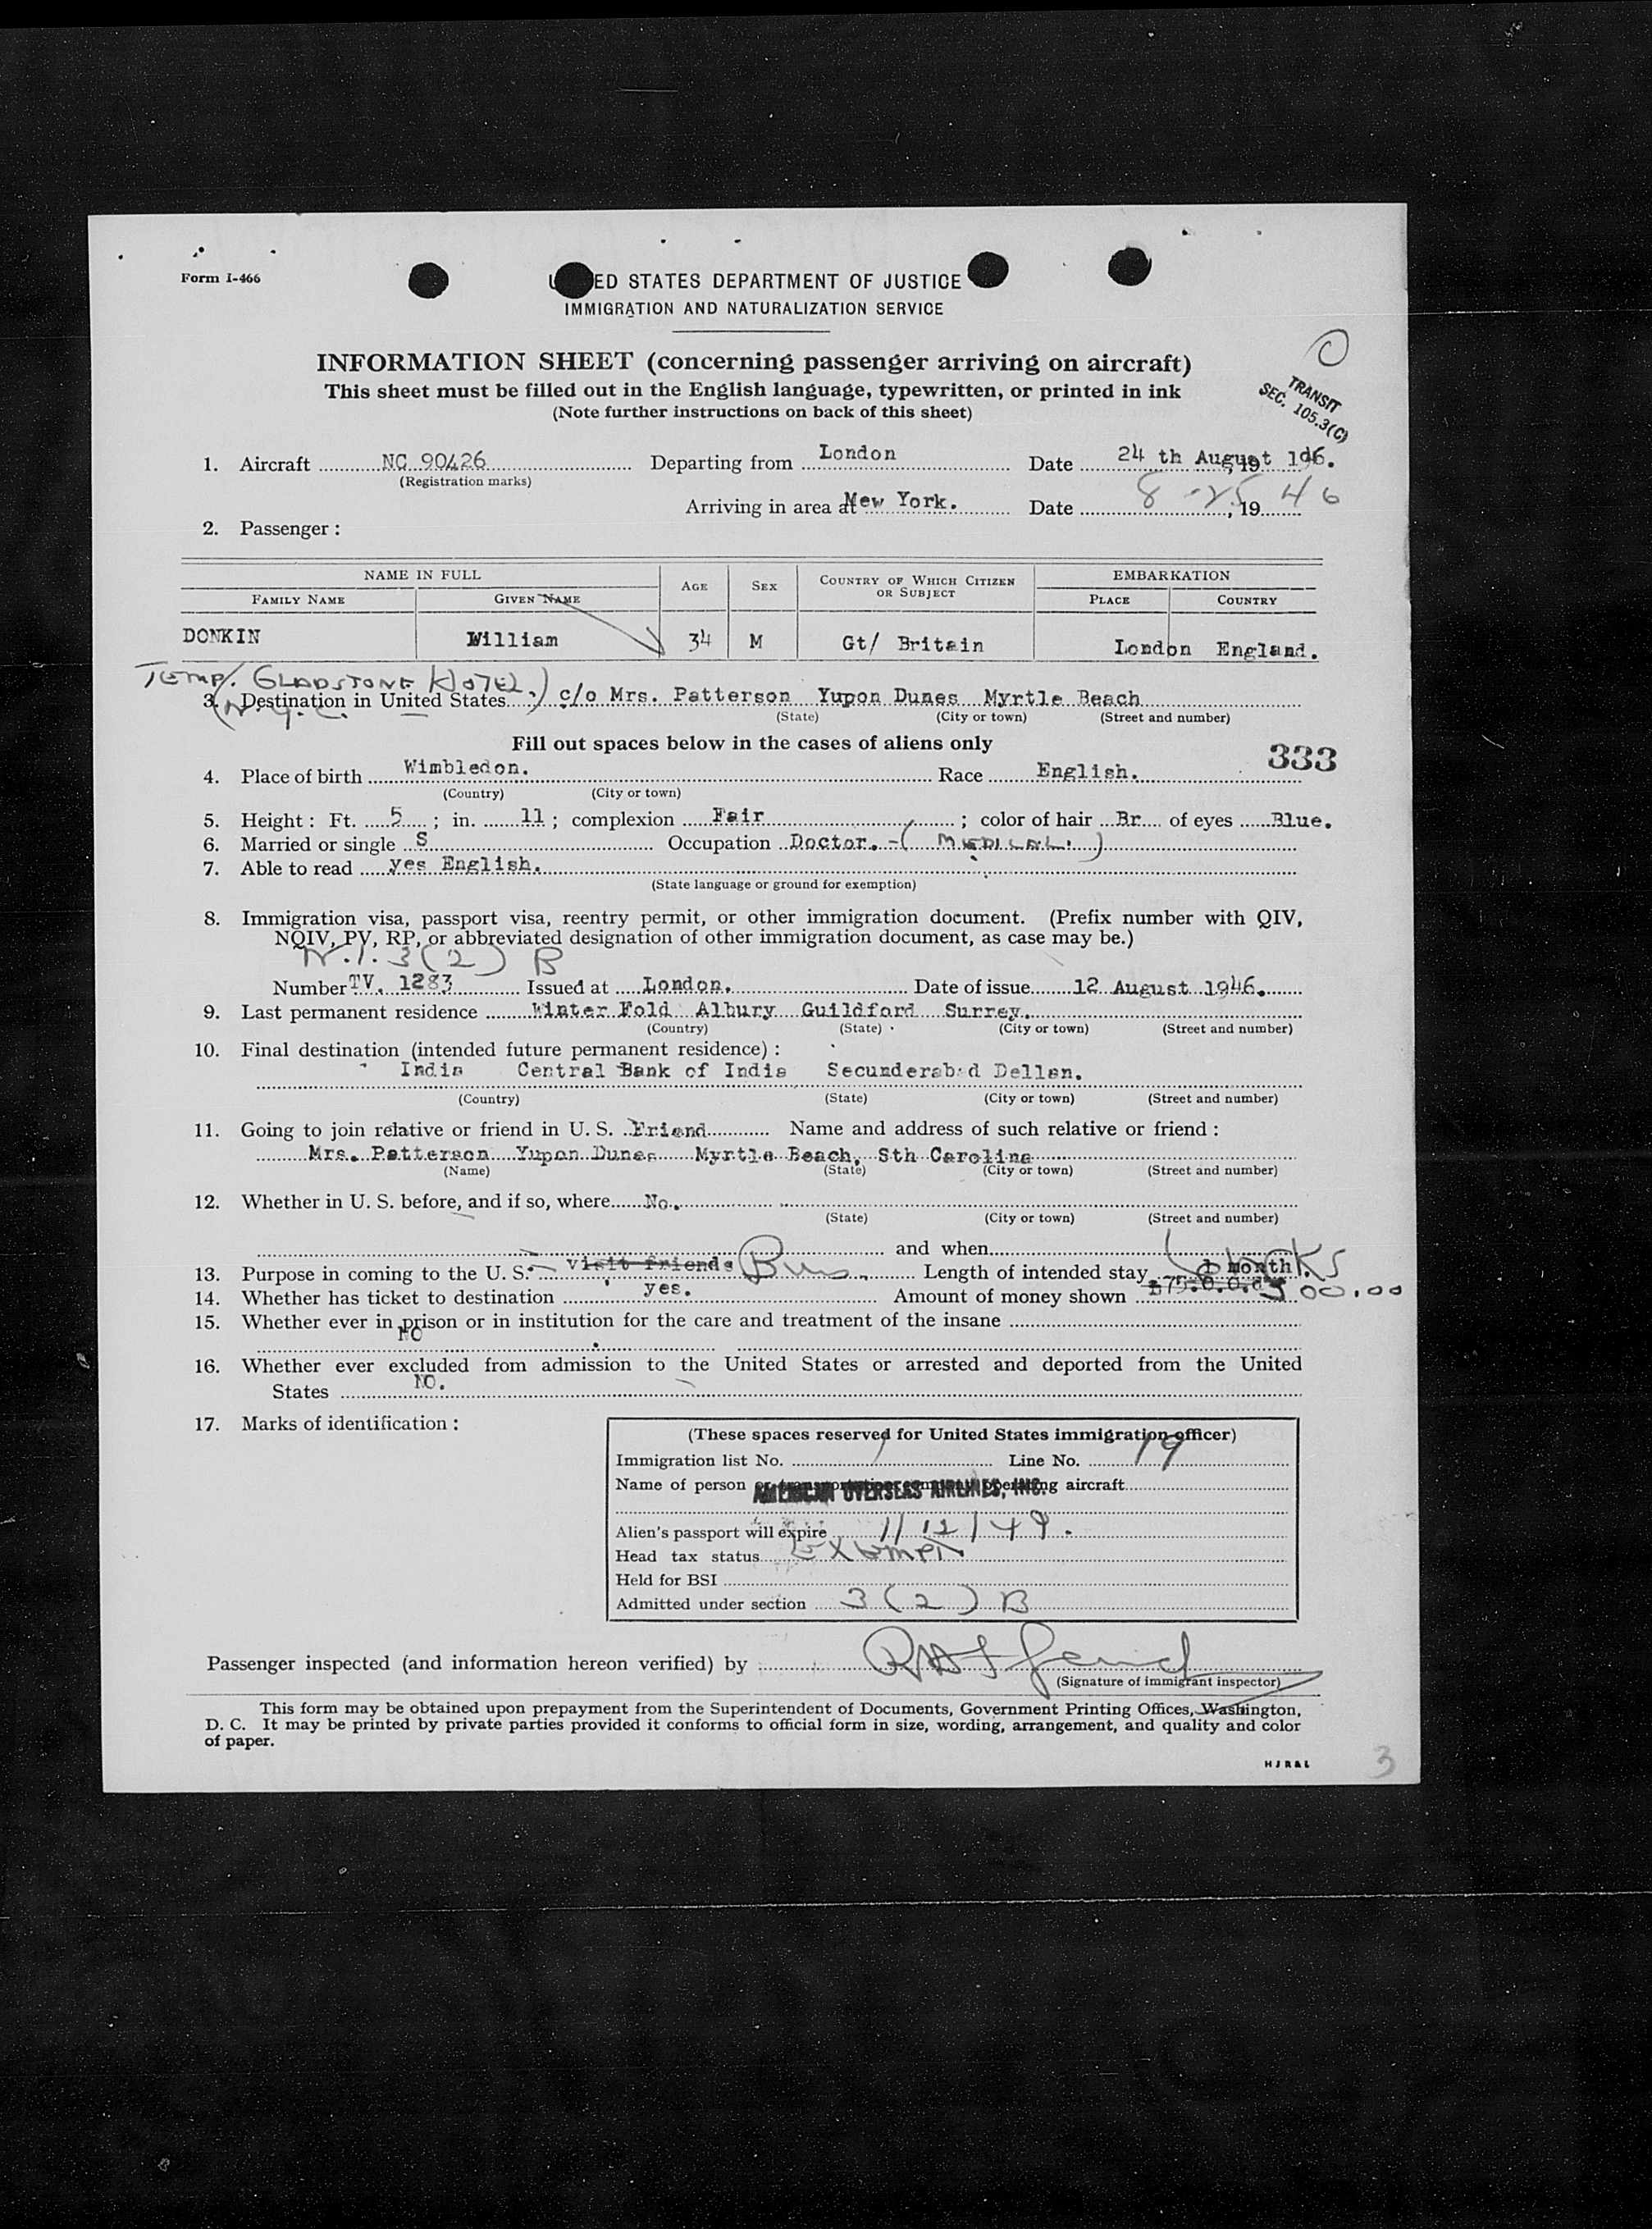 Form I-466
ED STATES DEPARTMENT OF JUSTICE
IMMIGRATION AND NATURALIZATION SERVICE
INFORMATION SHEET (concerning passenger arriving on aircraft)
This sheet must be filled out in the English language, typewritten, or printed in ink
(Note further instructions on back of this sheet)
TRANSIT
SEC. 105.3(C)
1. Aircraft NC 90426 Departing from London Date 24 th August 19
(Registration marks)
Arriving in area at New York. Date 8-25, 1946
2. Passenger :
NAME IN FULL AGE SEX COUNTRY OF WHICH CITIZEN OR SUBJECT EMBARKATION
FAMILY NAME GIVEN NAME PLACE COUNTRY
DONKIN William 34 M Gt/ Britain London England.
TEMP. GLADSTONE HOTEL.
(N.Y.C.)
3. Destination in United States c/o Mrs. Patterson Yupon Dunes Myrtle Beach
(State) (City or town) (Street and number)
Fill out spaces below in the cases of aliens only
333
4. Place of birth Wimbledon. Race English.
(Country) (City or town)
5. Height : Ft. 5 ; in. 11 ; complexion Fair ; color of hair Br of eyes Blue.
6. Married or single S Occupation Doctor. - (MEDICAL.)
7. Able to read yes English.
(State language or ground for exemption)
8. Immigration visa, passport visa, reentry permit, or other immigration document. (Prefix number with QIV,
NQIV, PV, RP, or abbreviated designation of other immigration document, as case may be.)
3(2) B
Number TV. 1283 Issued at London. Date of issue 12 August 1946.
9. Last permanent residence Winter Fold Albury Guildford Surrey.
(Country) (State) (City or town) (Street and number)
10. Final destination (intended future permanent residence) :
India Central Bank of India Secunderabad Deccan.
(Country) (State) (City or town) (Street and number)
11. Going to join relative or friend in U. S. Friend Name and address of such relative or friend :
Mrs. Patterson Yupon Dunes Myrtle Beach, Sth Carolina
(Name) (State) (City or town) (Street and number)
12. Whether in U. S. before, and if so, where No.
(State) (City or town) (Street and number)
and when
13. Purpose in coming to the U. S. visit friends Bus. Length of intended stay 1 month.
14. Whether has ticket to destination yes. Amount of money shown £75.0.0. 500.00
15. Whether ever in prison or in institution for the care and treatment of the insane
NO
16. Whether ever excluded from admission to the United States or arrested and deported from the United
States NO.
17. Marks of identification :
(These spaces reserved for United States immigration officer)
Immigration list No. 1 Line No. 19
Name of person or transportation company operating aircraft
AMERICAN OVERSEAS AIRLINES, INC.
Alien's passport will expire 1/12/49.
Head tax status Exempt
Held for BSI
Admitted under section 3(2) B
Passenger inspected (and information hereon verified) by
(Signature of immigrant inspector)
This form may be obtained upon prepayment from the Superintendent of Documents, Government Printing Offices, Washington,
D. C. It may be printed by private parties provided it conforms to official form in size, wording, arrangement, and quality and color
of paper.
HJR&L
3